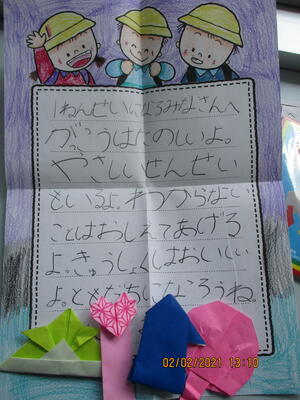 1ねんせいになるみなさんへ
がっこうはたのしいよ。
やさしいせんせい
もいるよ。わからない
ことはおしえてあげる
よ。きゅうしょくはおいしい
よ。ともだちになろうね。
02/02/2021 13:10